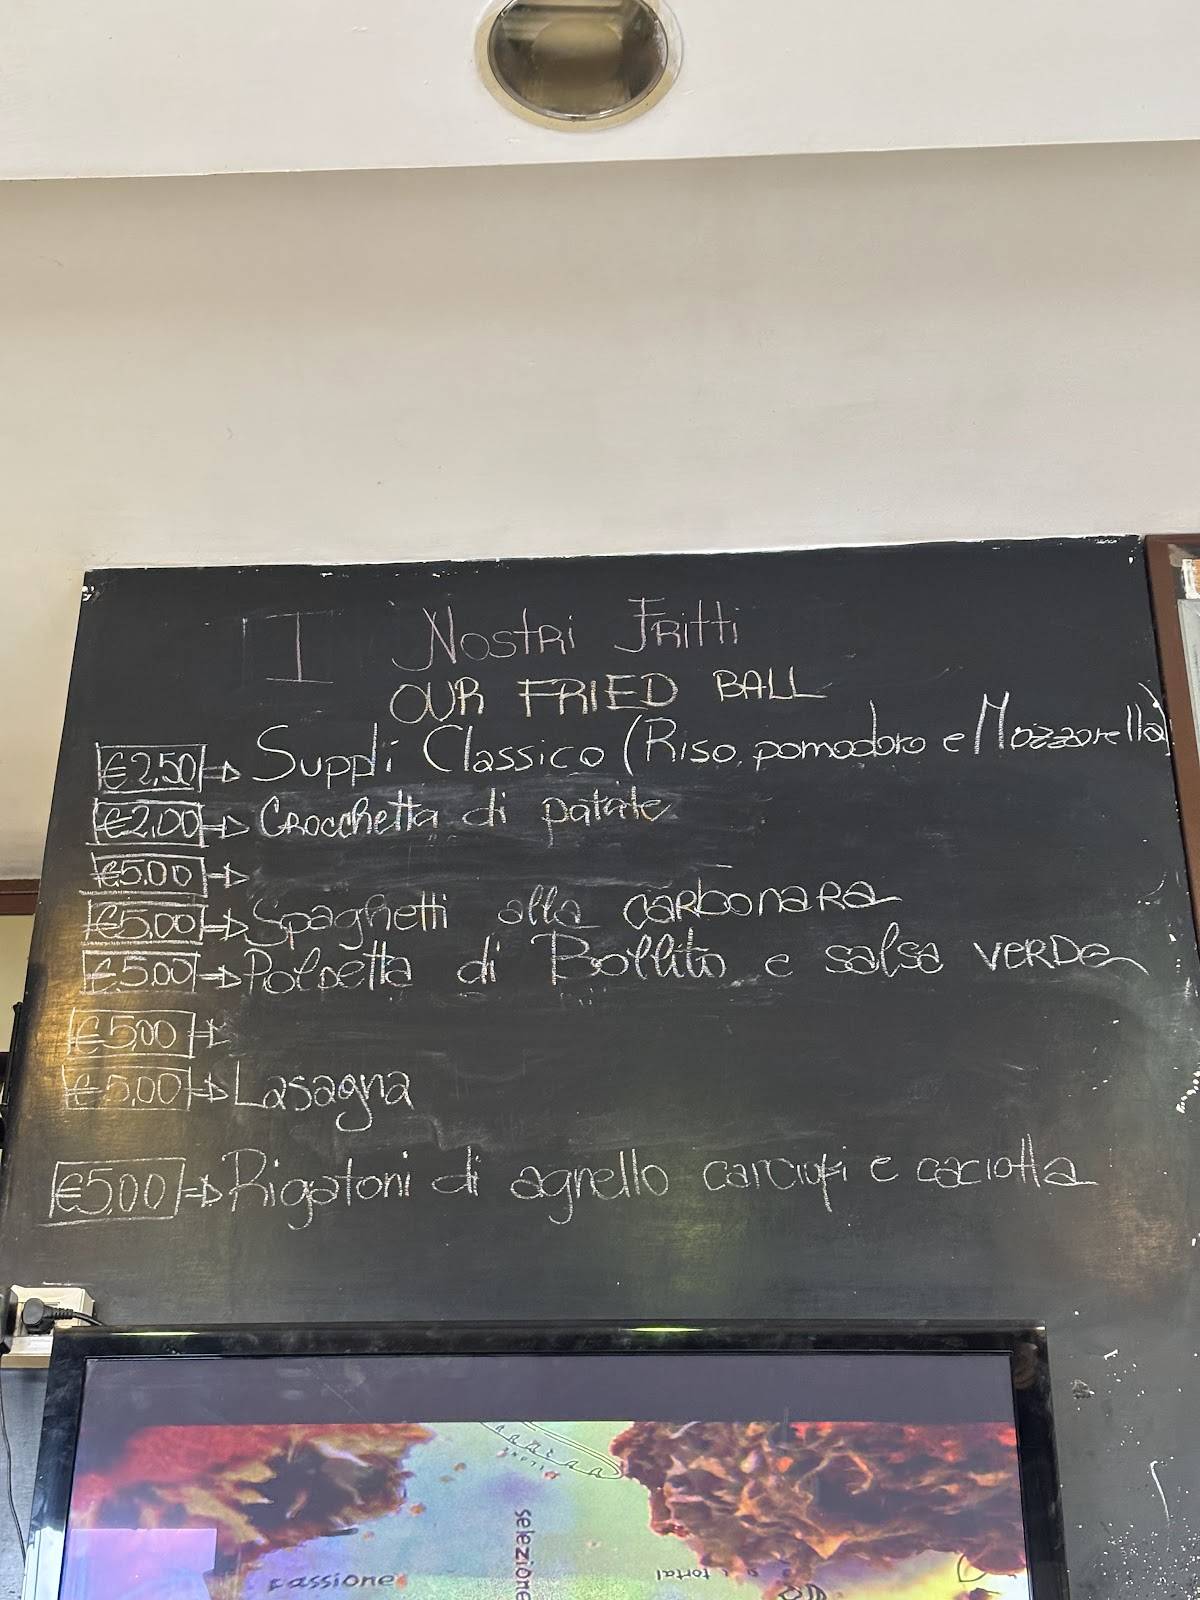 I Nostri Fritti
OUR FRIED BALL
€2,50 Supplì Classico (Riso, pomodoro e Mozzarella)
€2,00 Crocchetta di patate
€5,00
€5,00 Spaghetti alla carbonara
€5,00 Polpetta di Bollito e salsa VERDe
€5,00
€5,00 Lasagna
€5,00 Rigatoni di agnello carciofi e caciotta
selezione
passione